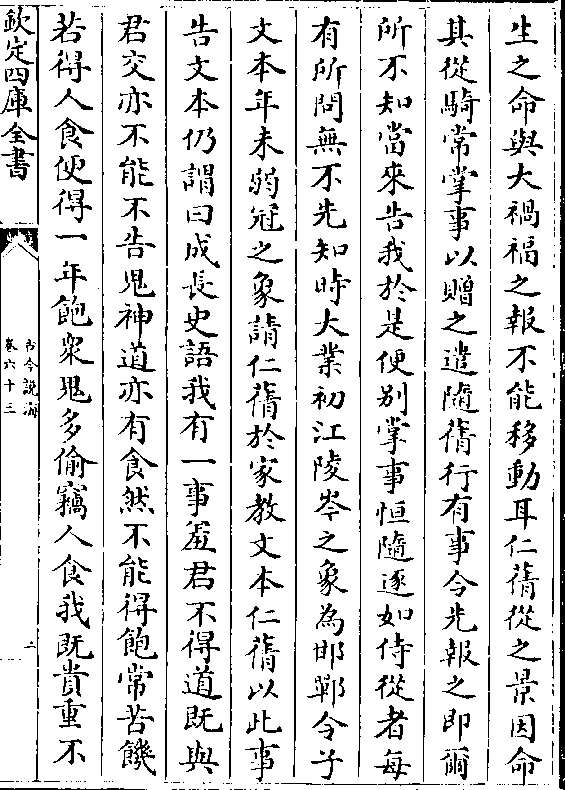 生之命與大禍福之報不能移動耳仁蒨從之景因命
其從騎常掌事以贈之遣隨蒨行有事令先報之即爾
所不知當來告我於是便别掌事恒隨逐如侍從者每
有所問無不先知時大業初江陵岑之象為邯鄲令子
文本年未弱冠之象請仁蒨於家教文本仁蒨以此事
告文本仍謂曰成長史語我有一事羞君不得道既與
君交亦不能不告鬼神道亦有食然不能得飽常苦饑
若得人食便得一年飽衆鬼多偷竊人食我既貴重不
欽定四庫全書
古今說海
卷六十三
二